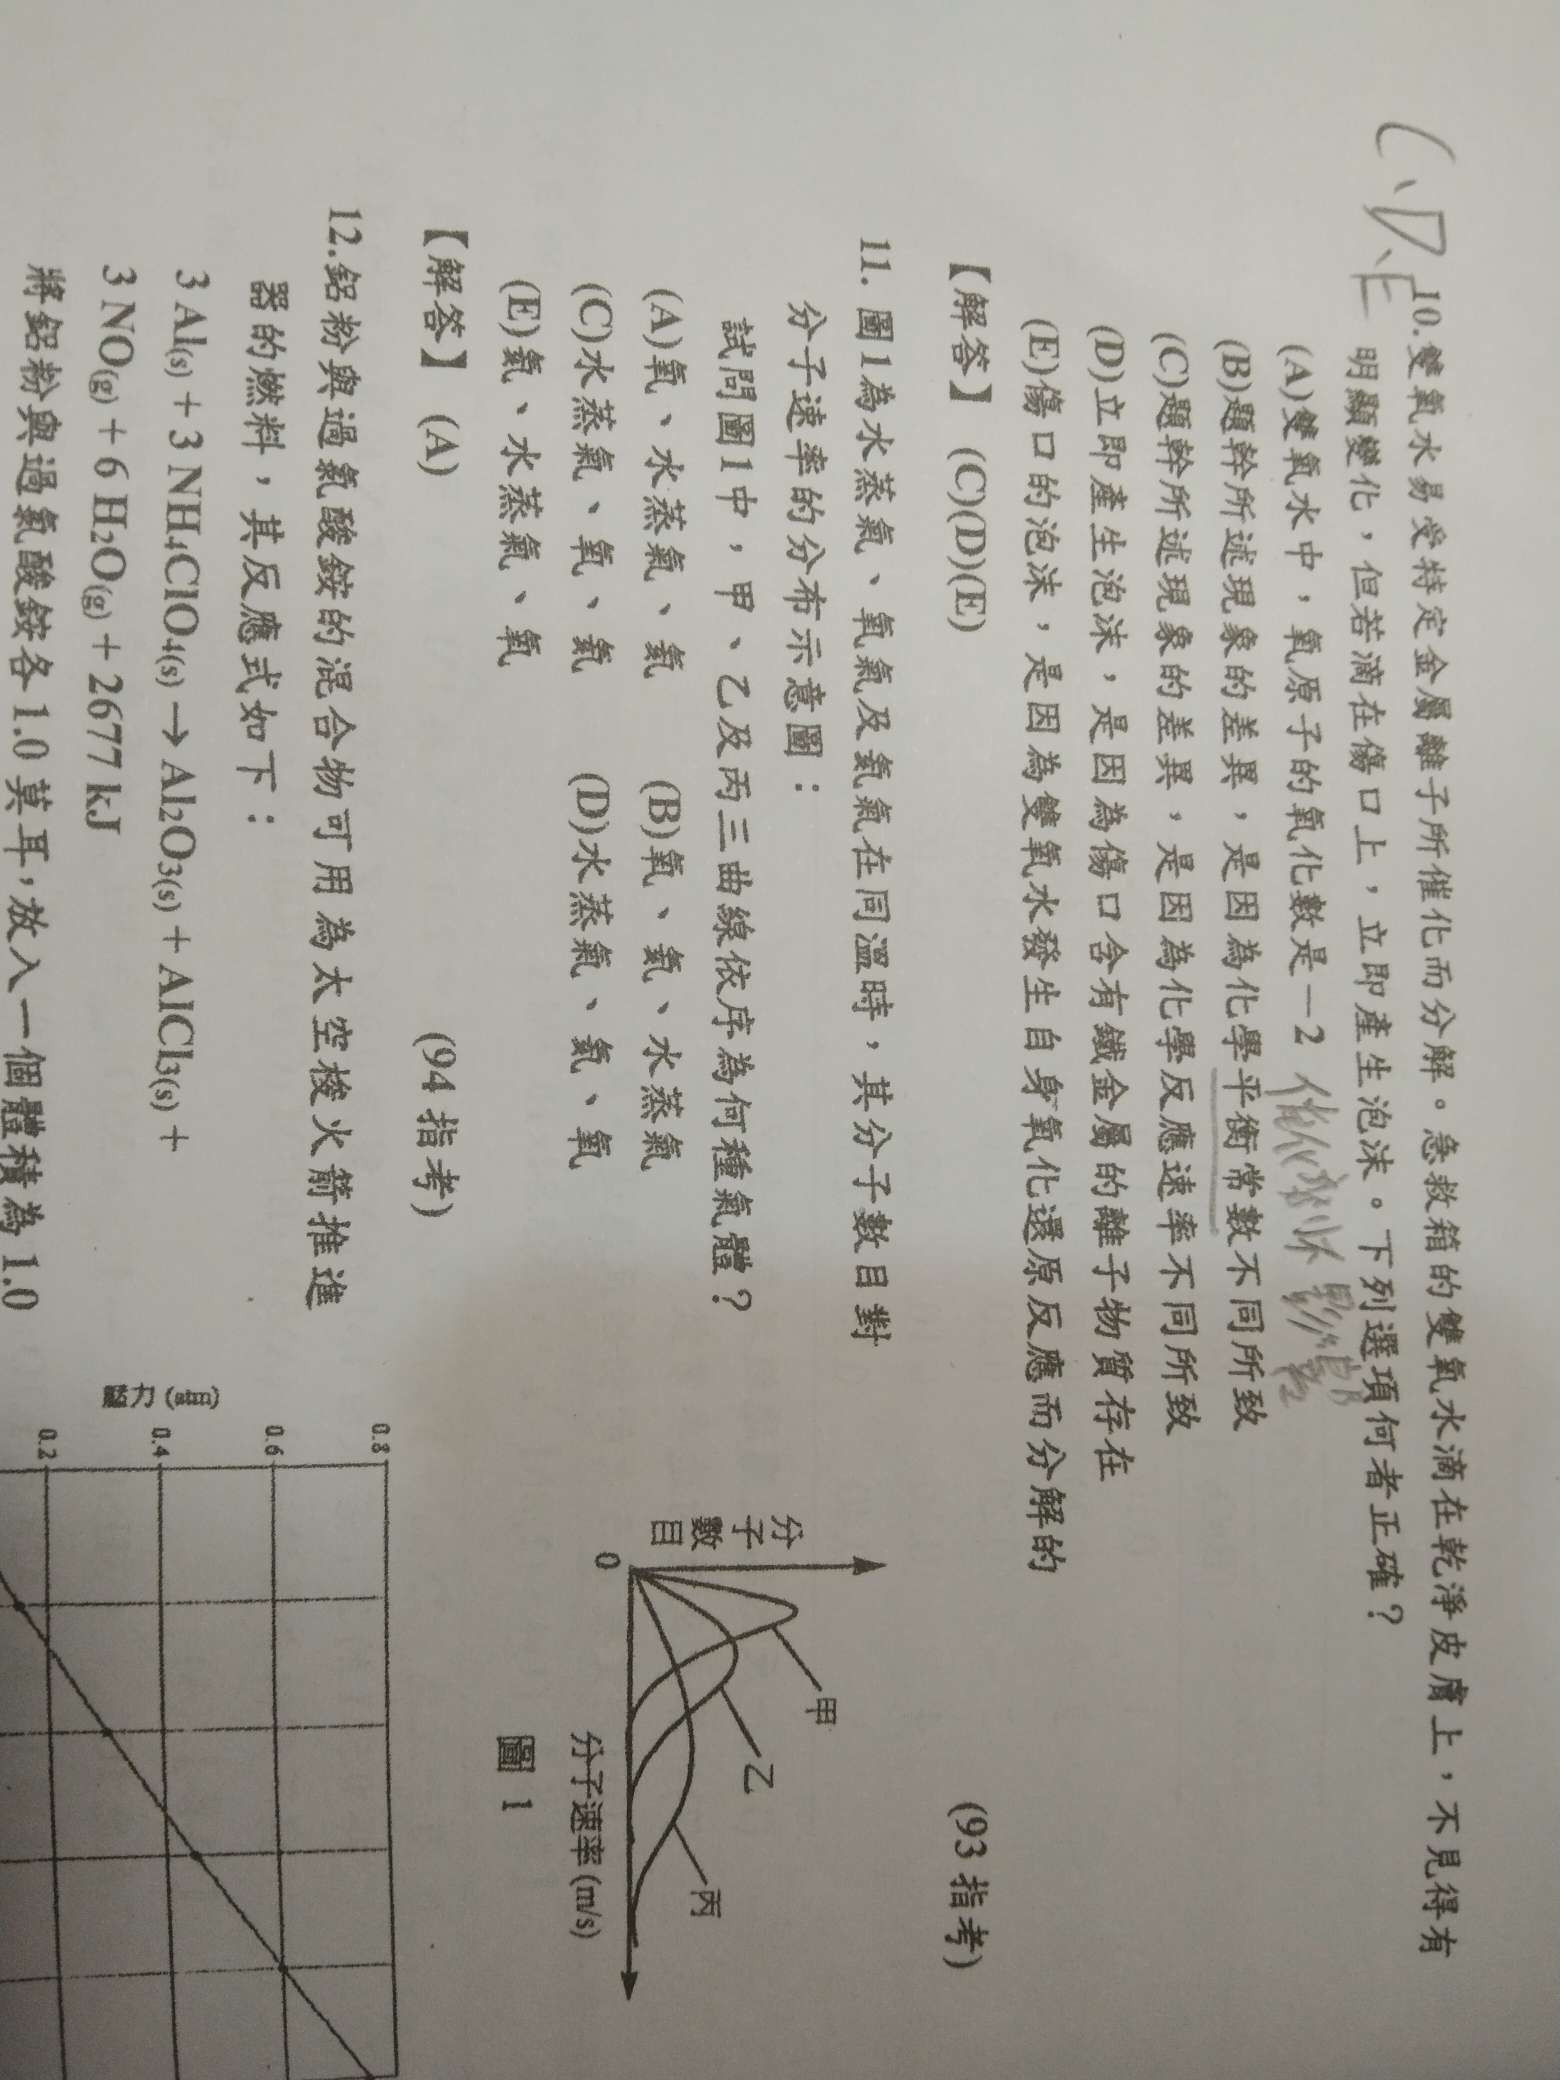 C、D、E
10.雙氧水易受特定金屬離子所催化而分解。急救箱的雙氧水滴在乾淨皮膚上，不見得有
明顯變化，但若滴在傷口上，立即產生泡沫。下列選項何者正確？
(A)雙氧水中，氧原子的氧化數是－2
(B)題幹所述現象的差異，是因為化學平衡常數不同所致
(C)題幹所述現象的差異，是因為化學反應速率不同所致
(D)立即產生泡沫，是因為傷口含有鐵金屬的離子物質存在
(E)傷口的泡沫，是因為雙氧水發生自身氧化還原反應而分解的
【解答】 (C)(D)(E)
(93 指考)
11. 圖1為水蒸氣、氧氣及氦氣在同溫時，其分子數目對
分子速率的分布示意圖：
試問圖1中，甲、乙及丙三曲線依序為何種氣體？
(A)氧、水蒸氣、氦 (B)氧、氦、水蒸氣
(C)水蒸氣、氧、氦 (D)水蒸氣、氦、氧
(E)氦、水蒸氣、氧
【解答】 (A)
(94 指考)
分子數目
0
甲
乙
丙
分子速率 (m/s)
圖 1
12.鋁粉與過氯酸銨的混合物可用為太空梭火箭推進
器的燃料，其反應式如下：
3 Al(s) + 3 NH4ClO4(s) → Al2O3(s) + AlCl3(s) +
3 NO(g) + 6 H2O(g) + 2677 kJ
將鋁粉與過氯酸銨各 1.0 莫耳，放入一個體積為 1.0
壓力 (atm)
0.8
0.6
0.4
0.2